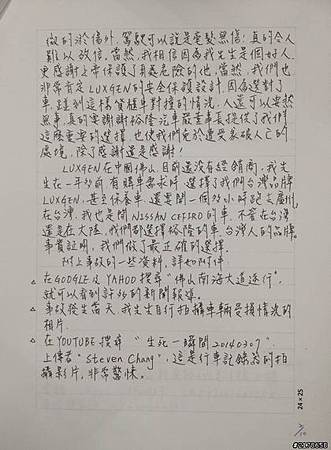 做的淤傷外, 駕駛可以說是毫髮無傷, 真的令人
難以放信。當然, 我相信因為我先生是個好人,
更感謝上帝保護了再處危險的他。當然, 我們也
非常肯定LUXGEN的安全保護設計, 因為選對了
車, 碰到這樣貨櫃車對撞的情況, 人還可以安然
無事, 真的要謝謝裕隆汽車嚴董事長提供了我們
這麼重要的選擇, 也使我們免於遭受家破人亡的
處境, 除了感謝還是感謝!
LUXGEN在中國佛山, 目前還沒有經銷商, 我先
生在一年多前有購車需求時, 選擇了我們台灣品牌
LUXGEN, 甚至保養車, 還要開一個多小時跑去廣州,
在台灣, 我也是開NISSAN CEFIRO的車, 不管在台灣
還是在大陸, 我們都選擇裕隆的車, 台灣人的品牌
事實証明, 我們做了最正確的選擇。
附上事故的一些資料, 詳如附件
在GOOGLE及YAHOO搜尋"佛山南海大道逆行",
就可以看到許多的新聞報導。
事故發生當天, 我先生自行拍攝車輛受損情況的
相片。
在YOUTUBE搜尋 "生死一瞬間20140307",
上傳者"Steven Chang", 這是行車記錄器的拍
攝影片, 非常驚悚。
24×25